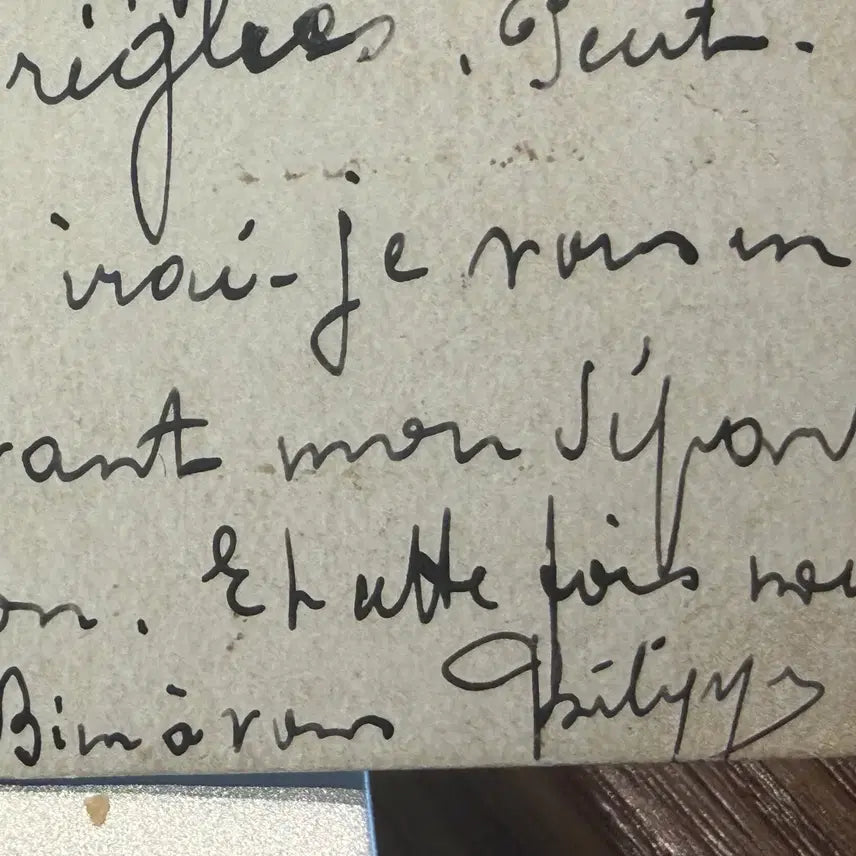 réglées. Peut-
irai-je vous en
vant mon dépar
on. Et cette fois nou
Bien à vous Philipp